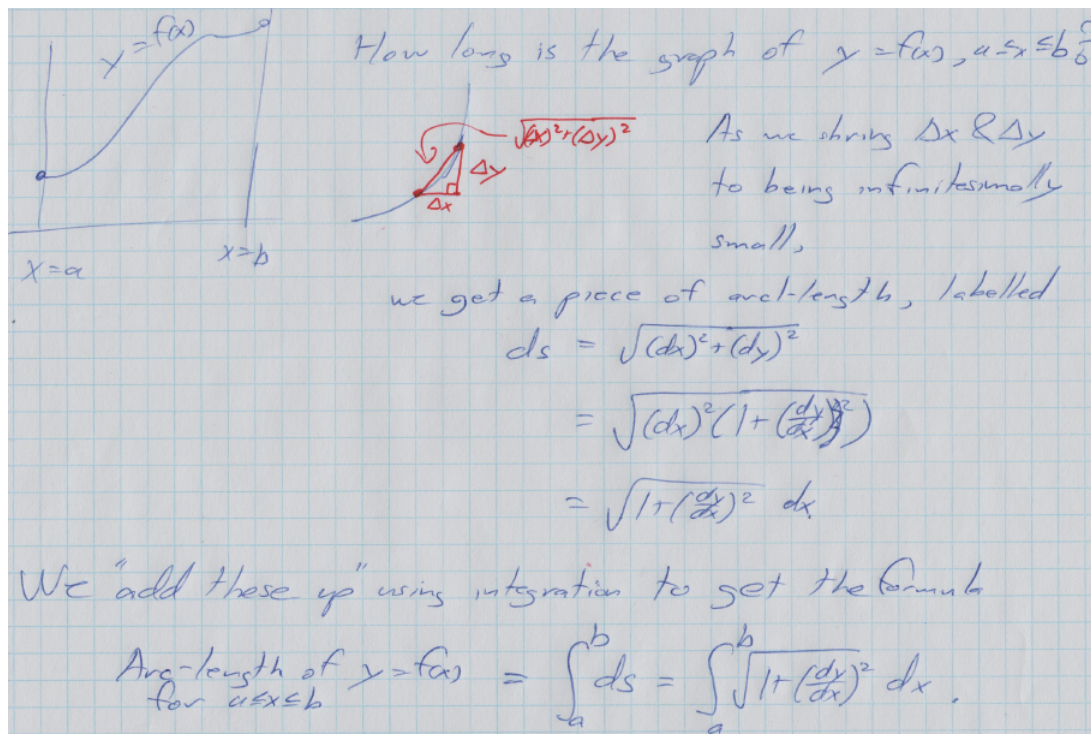 y=f(x)
x=a
x=b
How long is the graph of y=f(x), a≤x≤b?
√(Δx)²+(Δy)²
Δy
Δx
As we shring Δx & Δy
to being infinitesimally
small,
we get a piece of arcl-length, labelled
ds = √(dx)²+(dy)²
= √(dx)²(1+(dy/dx)²)
= √1+(dy/dx)² dx.
We "add these up" using integration to get the formula
Arc-length of y=f(x) = ∫ₐᵇ ds = ∫ₐᵇ √1+(dy/dx)² dx.
for a≤x≤b